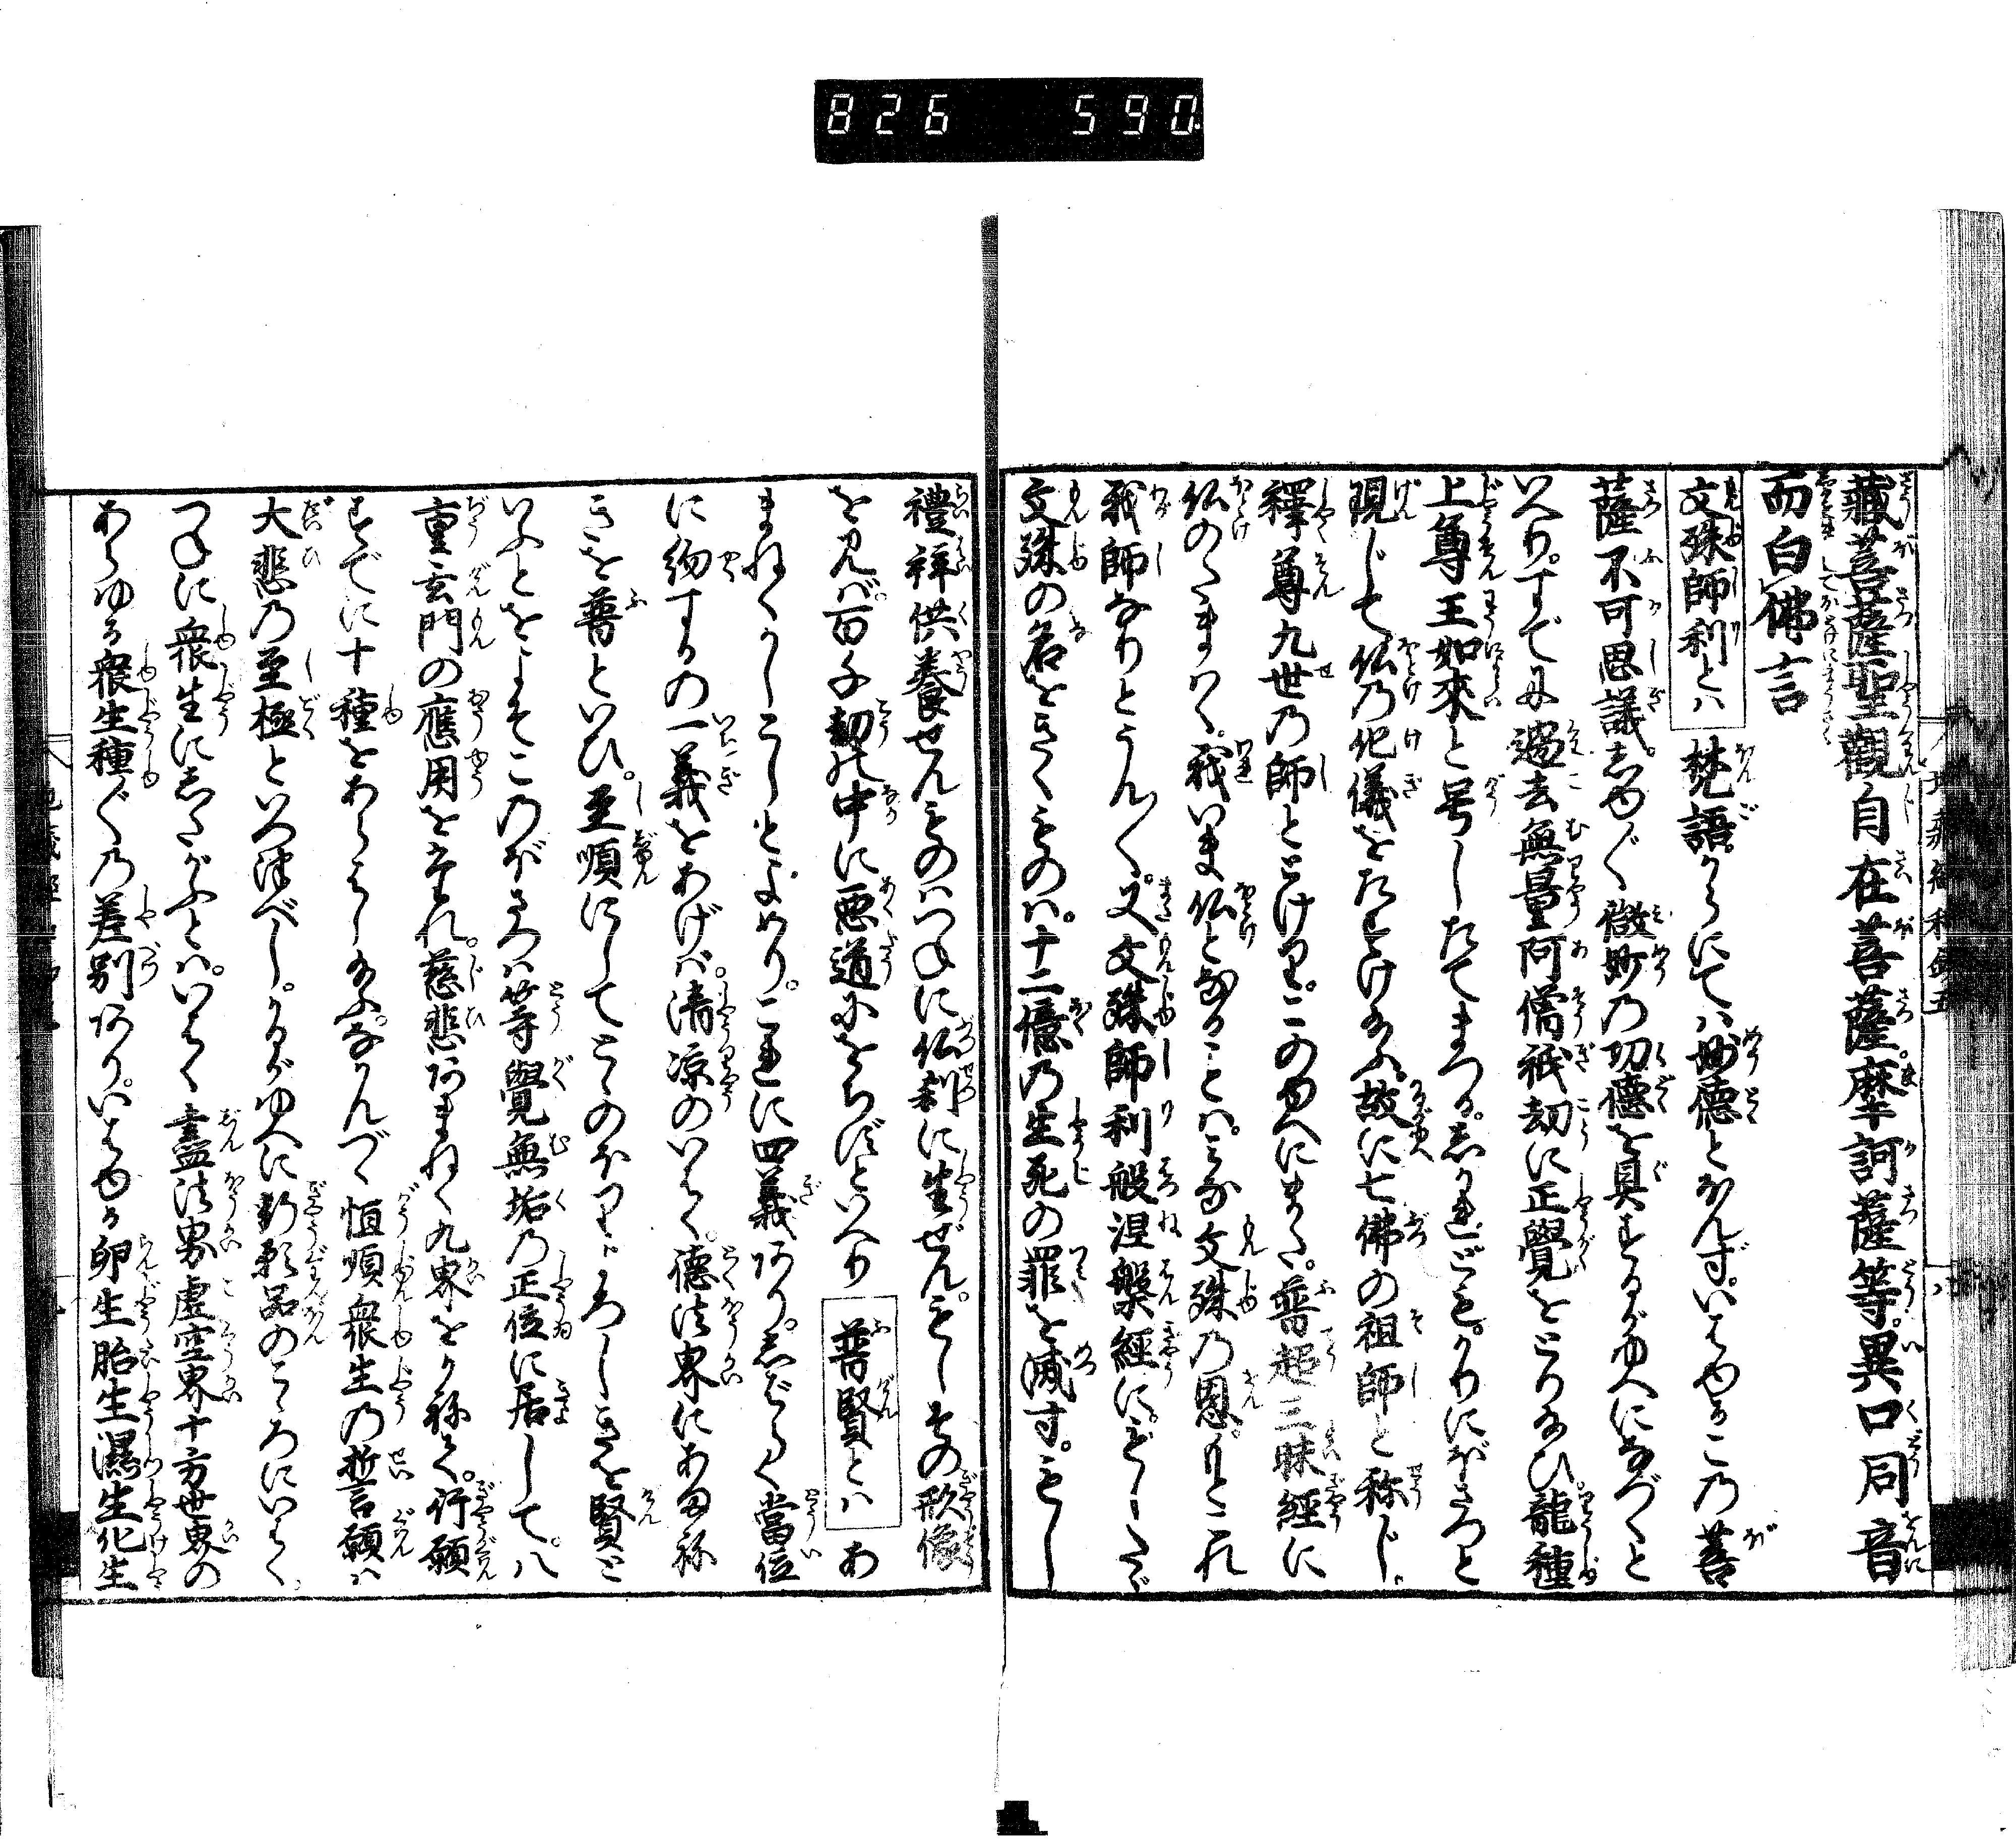 826 590
藏菩薩聖觀自在菩薩摩訶薩等異口同音
而白佛言
文殊師利とハ 梵語からにてハ妙徳とほんず。いはゆるこの菩
薩不可思議しゆ〴〵微妙の功徳を具するがゆへになづくと
いへり。すでに過去無量阿僧祇劫に正覺をとりなひ龍種
上尊王如來と号したてまつる。しかれども。かりにぼさつと
現じて仏の化儀をたすけ給ふ。故に七佛の祖師と称じ。
釋尊九世の師ととけり。このゆへにまた。普超三昧經に
仏のたまハく。我いま仏となることハ。みな文殊の恩。もとこれ
我師なりとうん〳〵。又文殊師利般涅槃經に。たゞ
文殊の名をきくものハ。十二億の生死の罪を滅す。もし
禮拜供養せんものハつねに仏刹に生ぜん。もしその形像
を見バ。百千劫の中に悪道にをちずといへり 普賢とハ あ
まねくかしこしとよめり。これに四義あり。しばらく當位
に約するの一義をあげバ。清凉のいはく。德法界にあまね
きを普といひ。至順にしてこゝのほりよろしきを賢と
いふとをよそこのぼさつハ等覺無垢の正位に居して。八
重玄門の應用をたれ。慈悲あまねく九界をかねて。行願
すでに十種をあらはし給ふ。なかんづく恒順衆生の誓願ハ
大悲の至極といつゝべし。かるがゆへに行願品のこゝろにいはく、
つねに衆生にしたがふとハ。いはく盡法界虛空界十方世界の
あらゆる衆生種〴〵の差別あり。いはゆる卵生胎生濕生化生